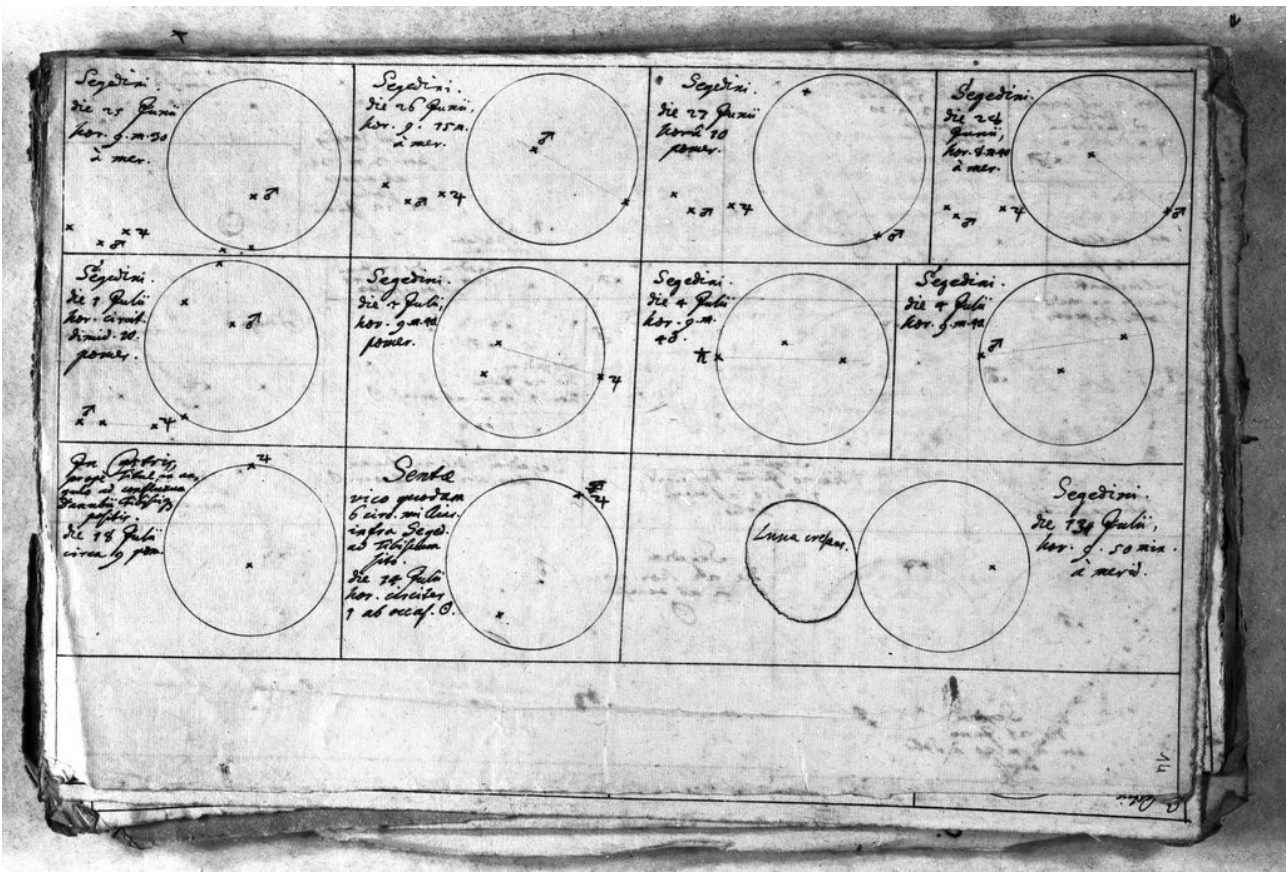 Segedini.
die 25 Junii
hor. 9. m. 30
à mer.
♂
♃
♂
Segedini.
die 26 Junii,
hor. 9. 15 m.
à mer.
♂
♂ ♃
Segedini.
die 27 Junii
horâ 10
pomer.
♂ ♃
♂
Segedini.
die 28
Junii,
hor. 8. m. 40
à mer.
♂ ♃
♂
Segedini.
die 1 Julii
hor. circit.
dimid. 10.
pomer.
♂
♂
♃
Segedini.
die 3 Julii,
hor. 9. m. 40
pomer.
♃
Segedini.
die 4 Julii
hor. 9. m.
40.
♄
Segedini.
die 4 Julii
hor. 9. m. 40
♂
prope Titel in an-
gulo ad confluxum
Danubii
positis.
die 18 Julii
circa 9 pom.
♃
Sentæ
vico quodam
6 circ. milliar.
infra Seged.
ad Tibiscum
sito.
die 14 Julii
hor. circiter
1 ab occas. ☉.
♃
Luna crescens.
Segedini.
die Julii,
hor. 9. 50 min.
à merid.
14